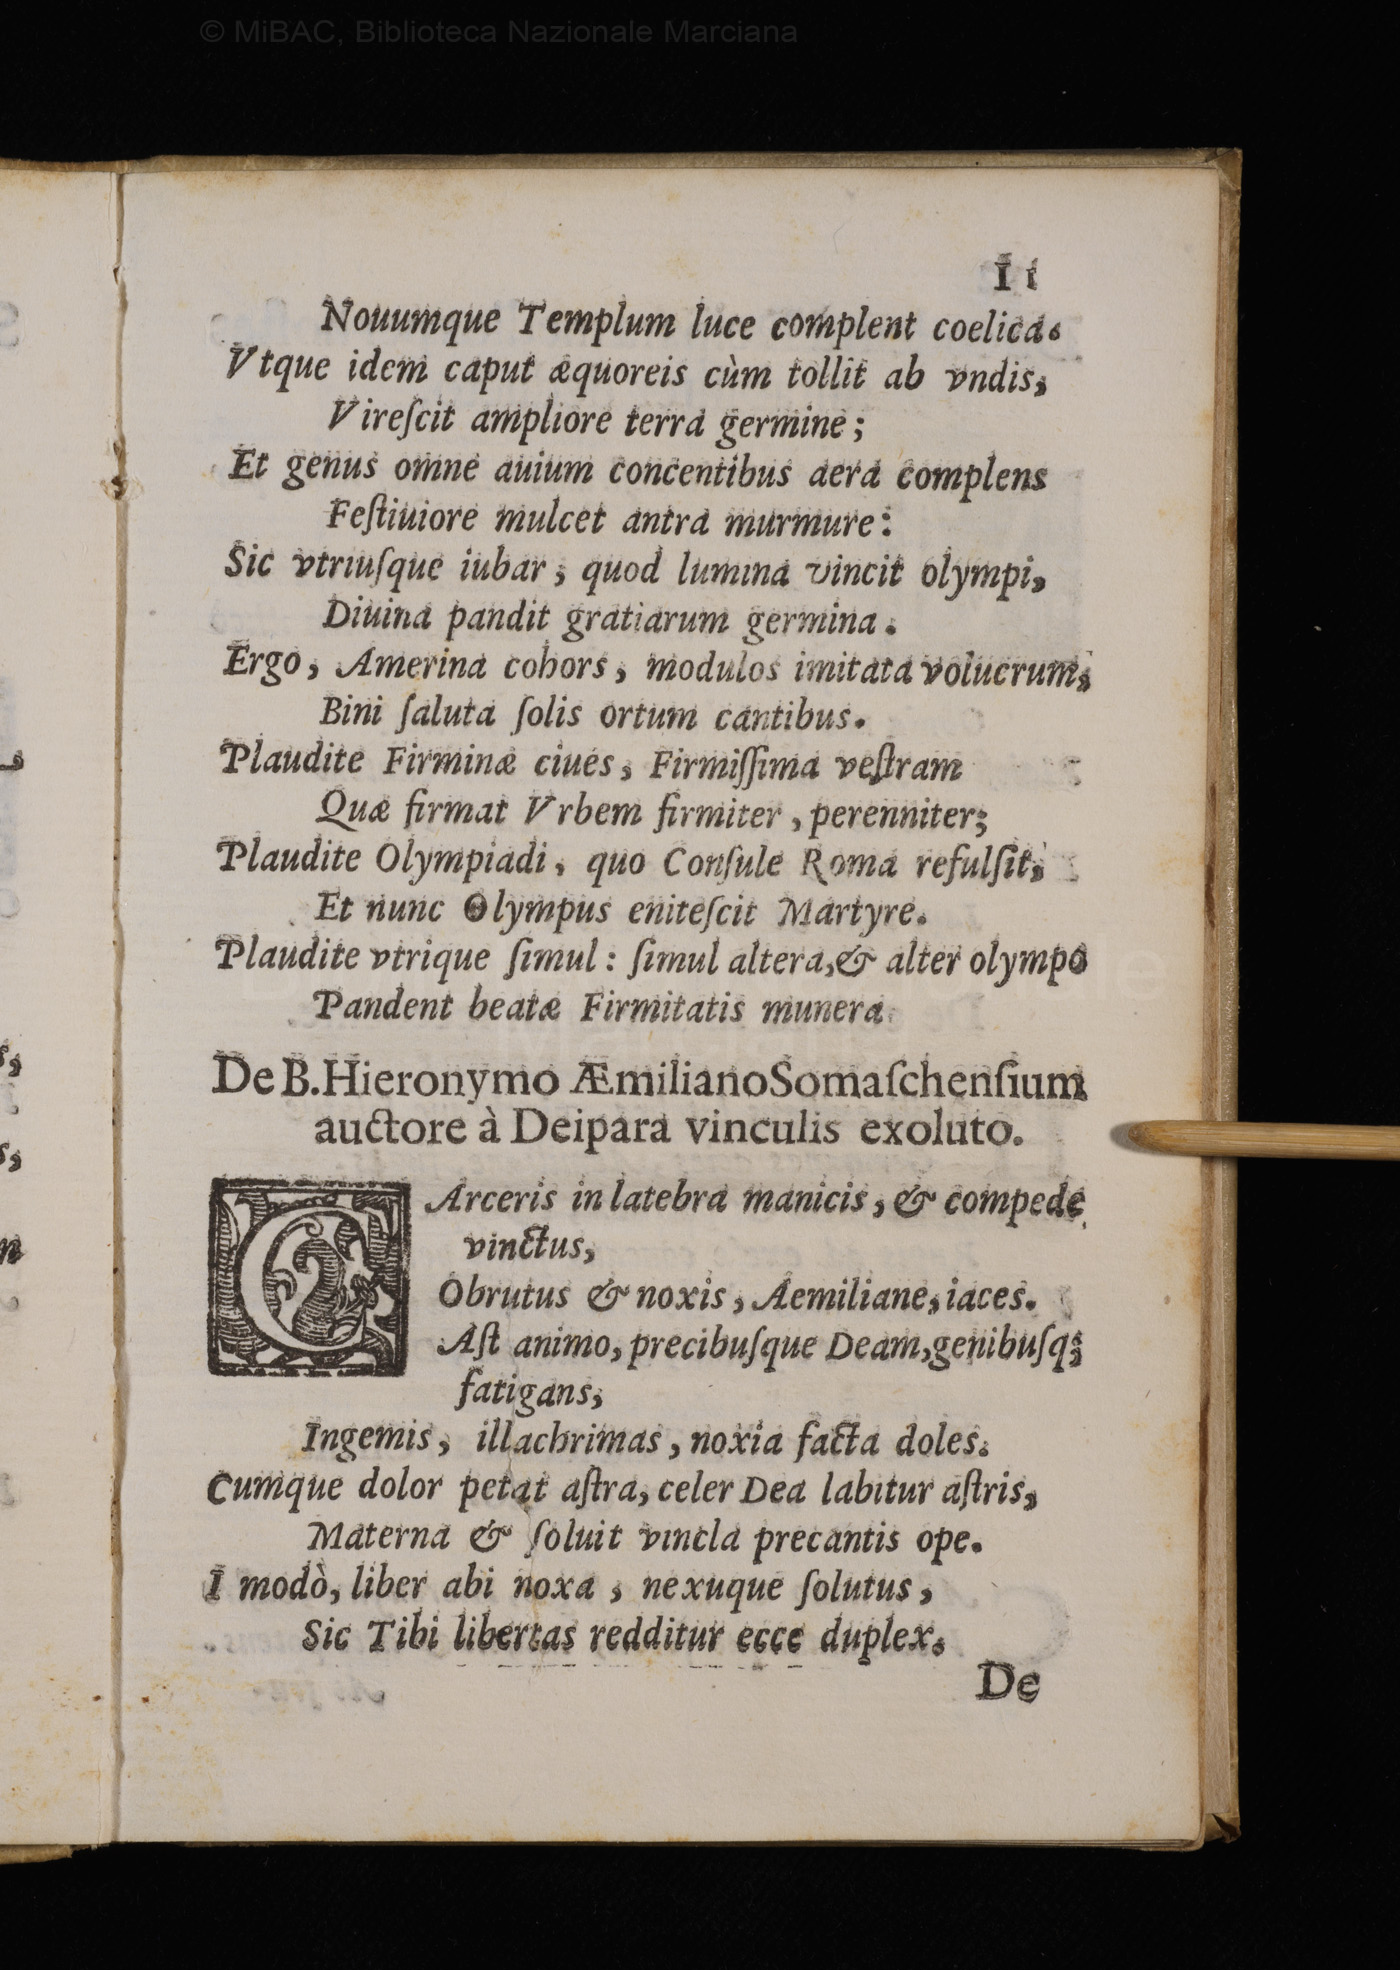 © MiBAC, Biblioteca Nazionale Marciana
11
Nouumque Templum luce complent coelica.
Vtque idem caput æquoreis cùm tollit ab vndis,
Vireſcit ampliore terra germine;
Et genus omne auium concentibus aera complens
Feſtiuiore mulcet antra murmure:
Sic vtriuſque iubar, quod lumina vincit olympi,
Diuina pandit gratiarum germina.
Ergo, Amerina cohors, modulos imitata volucrum,
Bini ſaluta ſolis ortum cantibus.
Plaudite Firminæ ciues, Firmiſſima veſtram
Quæ firmat Vrbem firmiter, perenniter;
Plaudite Olympiadi, quo Conſule Roma refulſit,
Et nunc Olympus eniteſcit Martyre.
Plaudite vtrique ſimul: ſimul altera,& alter olympo
Pandent beatæ Firmitatis munera.
De B.Hieronymo ÆmilianoSomaſchenſium
auctore à Deipara vinculis exoluto.
CArceris in latebra manicis, & compede
vinctus,
Obrutus & noxis, Aemiliane, iaces.
Aſt animo, precibuſque Deam,genibuſq;
fatigans,
Ingemis, illachrimas, noxia facta doles.
Cumque dolor petat aſtra, celer Dea labitur aſtris,
Materna & ſoluit vincla precantis ope.
I modò, liber abi noxa, nexuque ſolutus,
Sic Tibi libertas redditur ecce duplex.
De